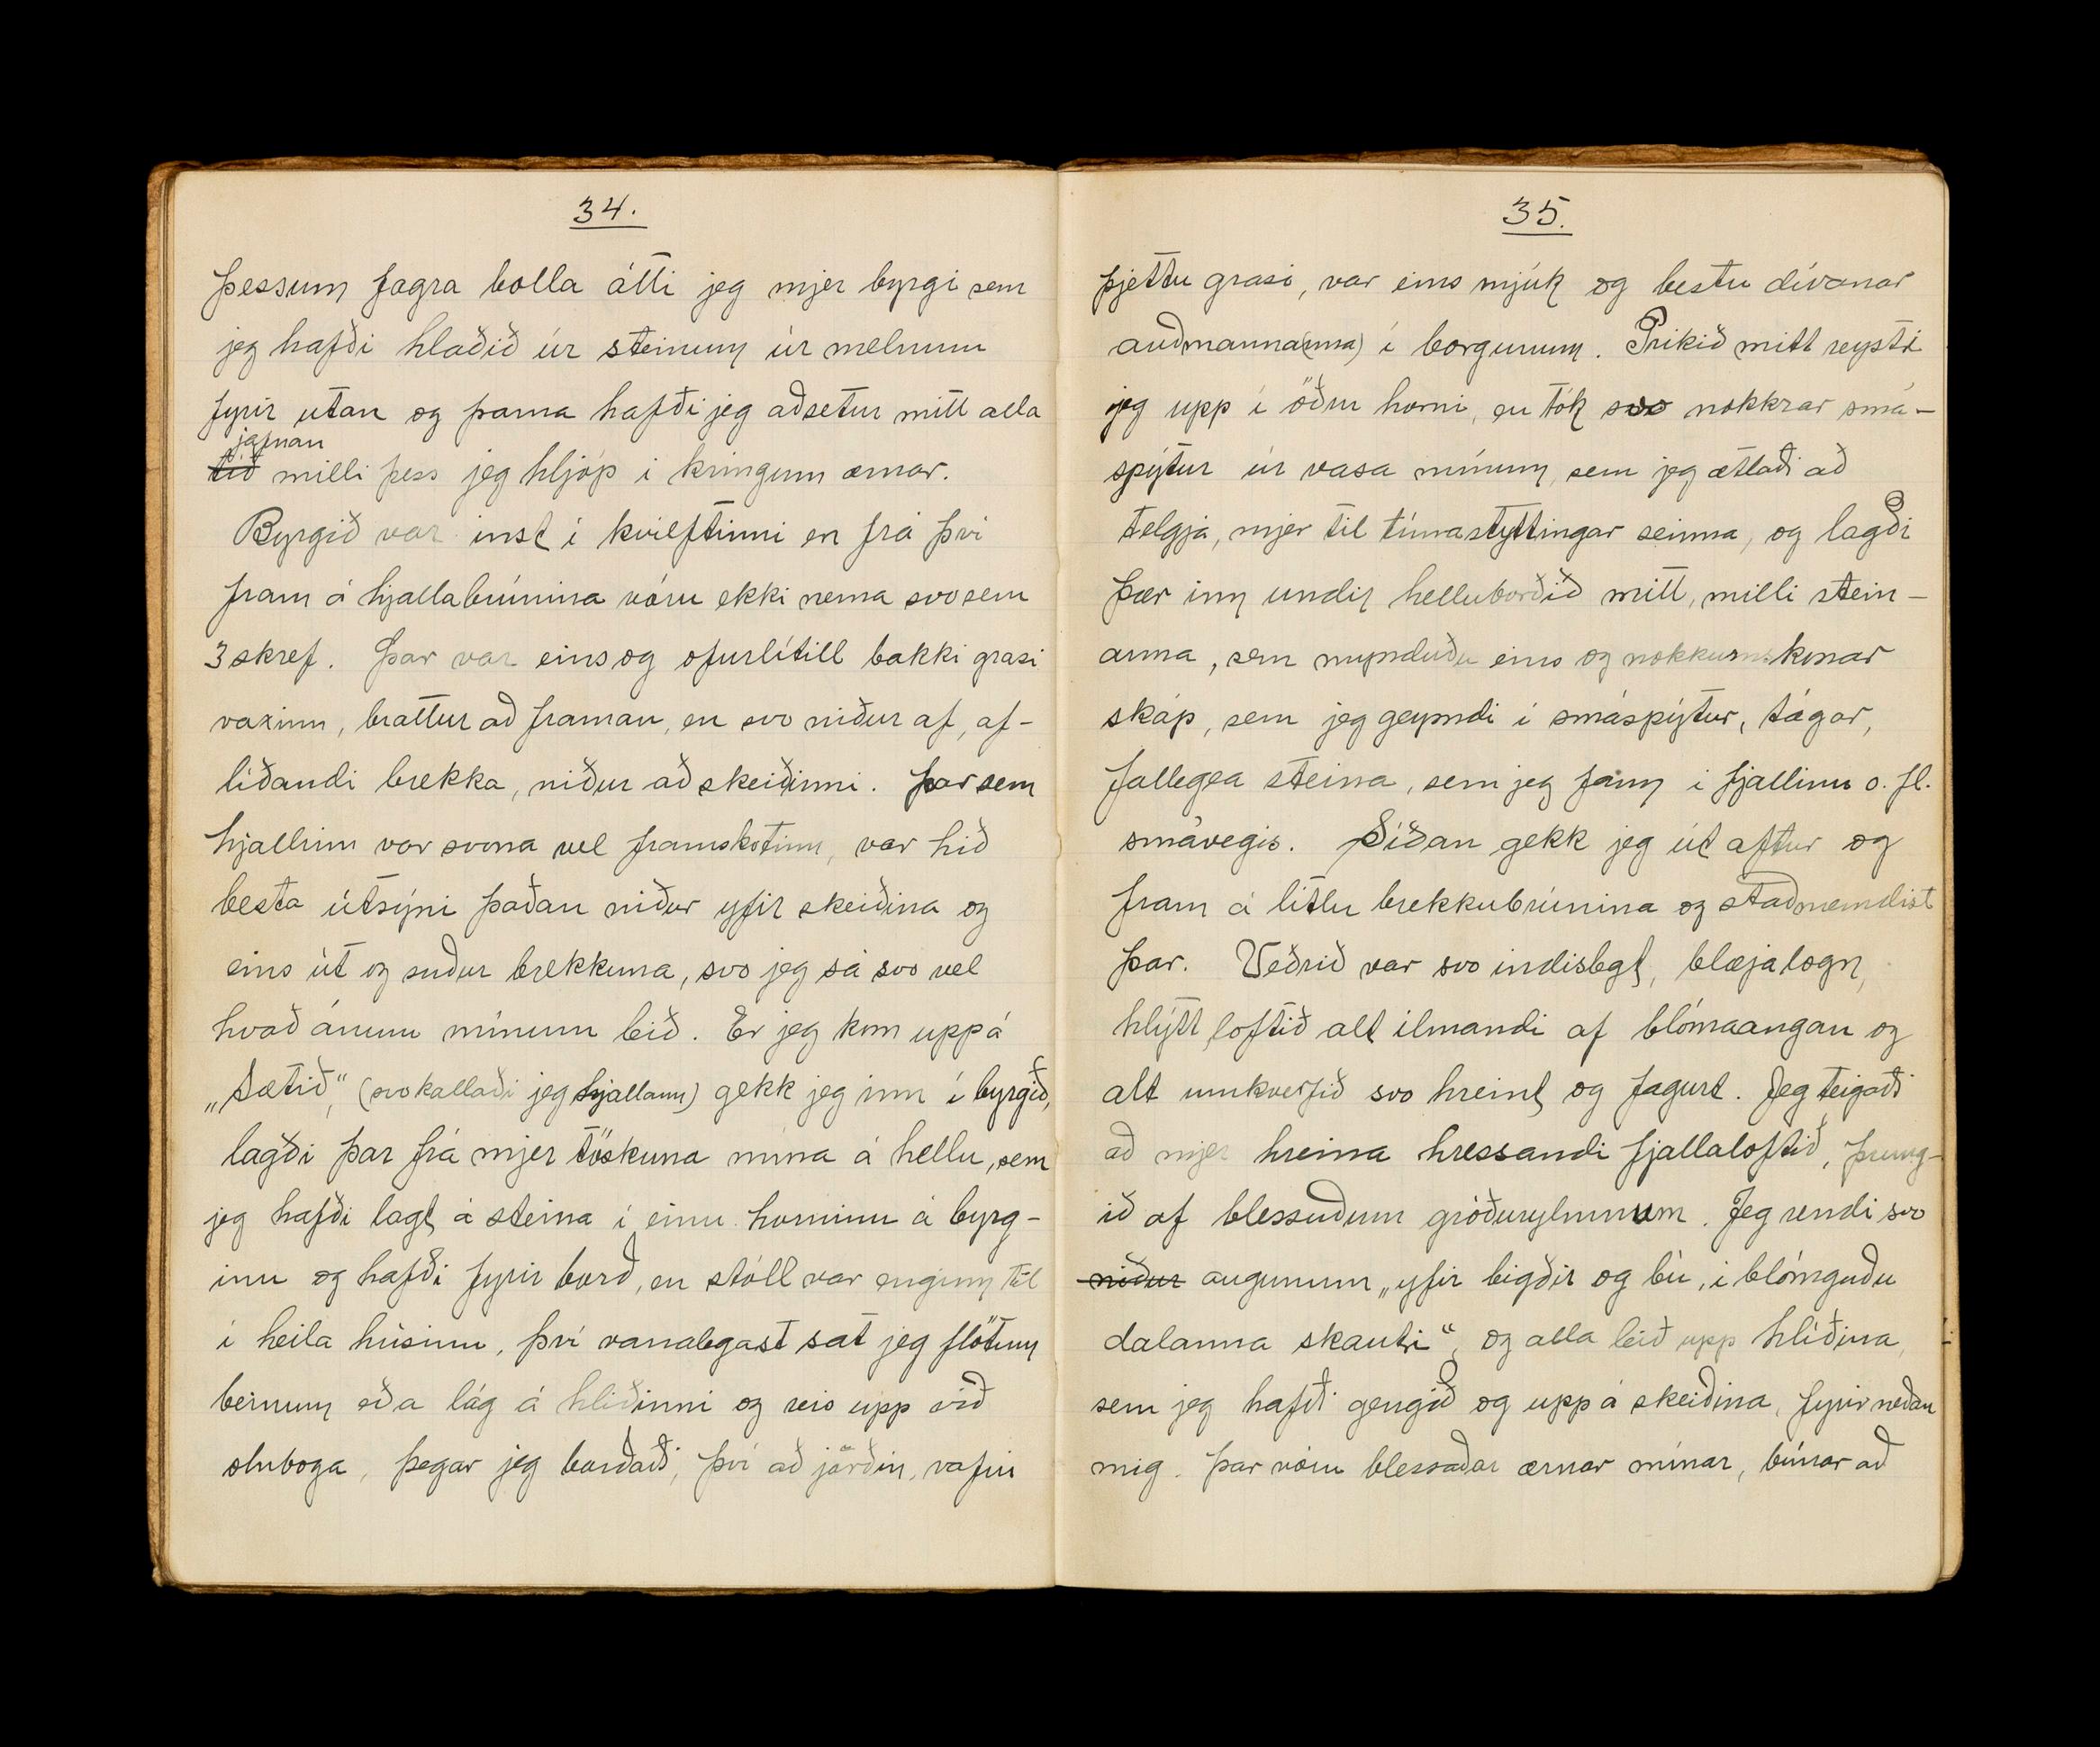 34.
þessum fagra bolla átti jeg mjer byrgi sem
jeg hafði hlaðið úr steinum úr melnum
fyrir utan og þarna hafði jeg aðsetur mitt alla
jafnan
tíð milli þess jeg hljóp í kringum ærnar.
Byrgið var inst í kvilftinni en frá því
fram á hjallabrúnina vóru ekki nema svosem
3 skref. Þar var eins og ofurlítill bakki grasi
vaxinn, brattur að framan, en svo niður af, af-
líðandi brekka, niður að skeiðinni. Þar sem
hjallinn var svona vel framskotinn, var hið
besta útsýni þaðan niður yfir skeiðina og
eins út og suður brekkuna, svo jeg sá svo vel
hvað ánum mínum leið. Er jeg kom uppá
„Sætið," (svo kallaði jeg hjallann) gekk jeg inn í byrgið,
lagði þar frá mjer töskuna mína á hellu, sem
jeg hafði lagt á steina í einu horninu á byrg-
inu og hafði fyrir borð, en stóll var enginn til
í heila húsinu, því vanalegast sat jeg flötum
beinum eða lág á hliðinni og reis upp við
olnboga, þegar jeg borðaði, því að jörðin, vafin
35.
þjettu grasi, var eins mjúk og bestu dívanar
auðmanna(nna) í borgunum. Prikið mitt reysti
jeg upp í öðru horni, en tók svo nokkrar smá-
spýtur úr vasa mínum, sem jeg ætlaði að
telgja, mjer til tímastyttingar seinna, og lagði
þær inn undir helluborðið mitt, milli stein-
anna, sem mynduðu eins og nokkurnskonar
skáp, sem jeg geymdi í smáspýtur, tágar,
fallega steina, sem jeg fann í fjallinu o. fl.
smávegis. Síðan gekk jeg út aftur og
fram á litlu brekkubrúnina og staðnæmdist
þar. Veðrið var svo indislegt, blæjalogn,
hlýtt, loftið alt ilmandi af blómaangan og
alt umkverfið svo hreint og fagurt. Jeg teigaði
að mjer hreina hressandi fjallaloftið, þrung-
ið af blessuðum gróðurylmnum. Jeg rendi svo
niður augunum „yfir bigðir og bú, í blómguðu
dalanna skauti", og alla leið upp hlíðina,
sem jeg hafði gengið og uppá skeiðina, fyrir neðan
mig. Þar vóru blessaðar ærnar mínar, búnar að